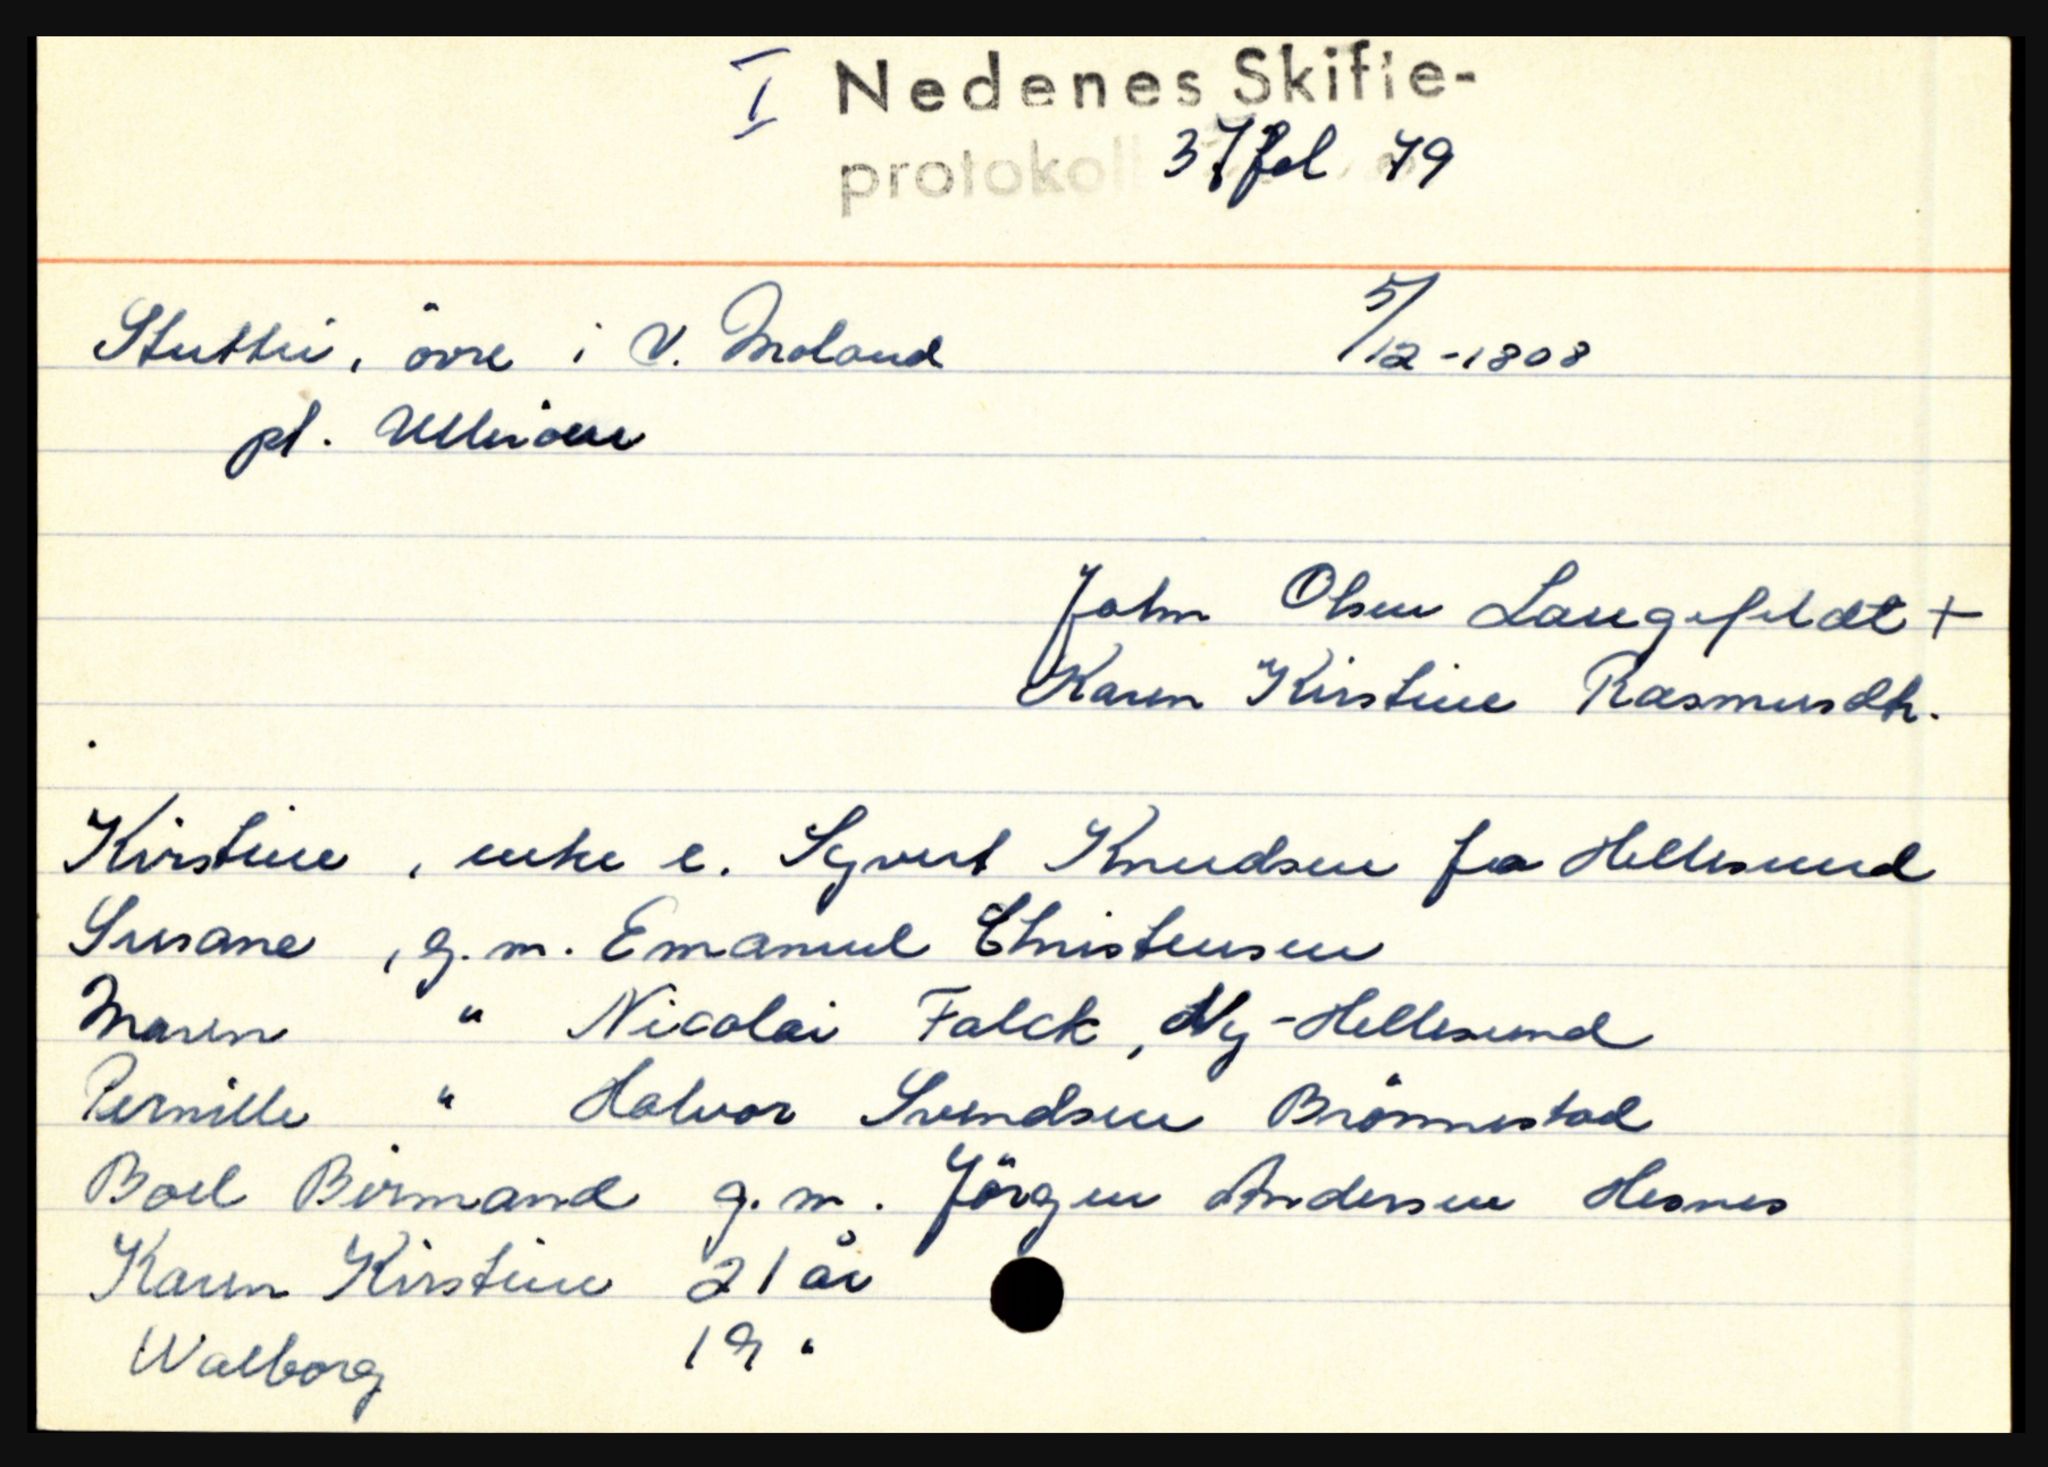 I Nedenes Skifte-
protokoll 37 fol 79
Stuttei, övre i V. Moland 5/12-1808
pl. Ulleröen
John Olsen Langefeldt +
Karen Kirstine Rasmusdtr.
Kirstine, enke e. Syvert Knudsen fra Hellesund
Susane, g.m. Emanuel Christensen
Maren " Nicolai Falck, Ny-Hellesund
Pernille " Halvor Svendsen Brönnestad
Boel Birmand g.m. Jörgen Andersen Hesnes
Karen Kirstine 21 år
Walborg 19 "